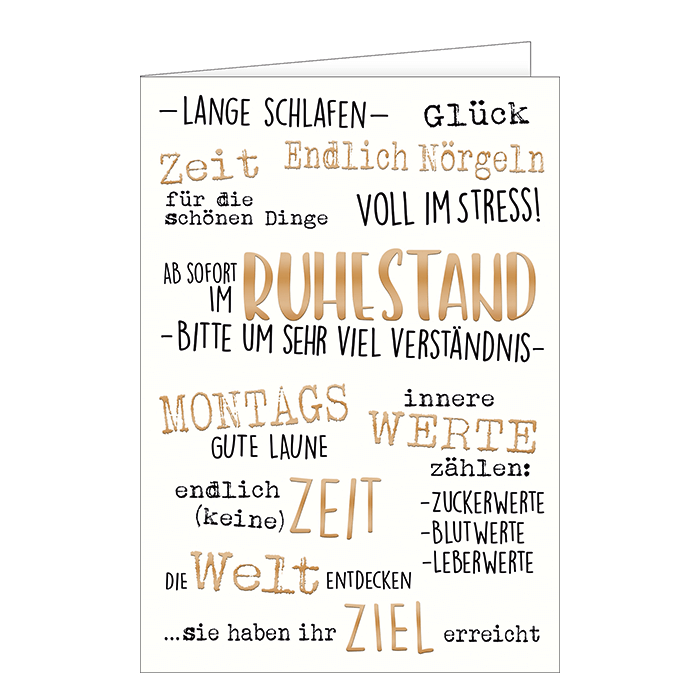 –LANGE SCHLAFEN–
Glück
Zeit
für die
schönen Dinge
Endlich Nörgeln
VOLL IM STRESS!
AB SOFORT
IM RUHESTAND
-BITTE UM SEHR VIEL VERSTÄNDNIS-
MONTAGS
GUTE LAUNE
innere
WERTE
zählen:
-ZUCKERWERTE
-BLUTWERTE
-LEBERWERTE
endlich
(keine) ZEIT
DIE Welt ENTDECKEN
...sie haben ihr ZIEL erreicht